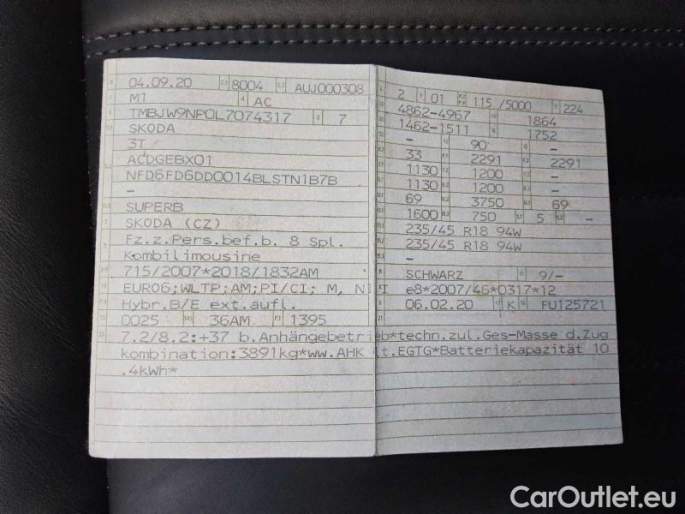 04.09.20 8004 AUJ000308
M1 AC
TMBJW9NP0L7074317 7
SKODA
3T
ACDGEBX01
NFD6FD6DD0014BLSTN1B7B
–
SUPERB
SKODA (CZ)
Fz.z.Pers.bef.b. 8 Spl.
Kombilimousine
715/2007*2018/1832AM
EURO6;WLTP;AM;PI/CI; M, N1 I
Hybr.B/E ext.aufl.
0025 36AM 1395
2 01 115 /5000 224
4862-4967 1864
1462-1511 1752
– 90 –
33 2291 2291
1130 1200 –
1130 1200 –
69 3750 69
1600 750 5 –
235/45 R18 94W
235/45 R18 94W
–
SCHWARZ 9/–
e8*2007/46*0317*12
06.02.20 K FU125721
7.2/8.2:+37 b.Anhängebetrieb*techn.zul.Ges-Masse d.Zug
kombination:3891kg*ww.AHK lt.EGTG*Batteriekapazität 10
.4kWh*
CarOutlet.eu